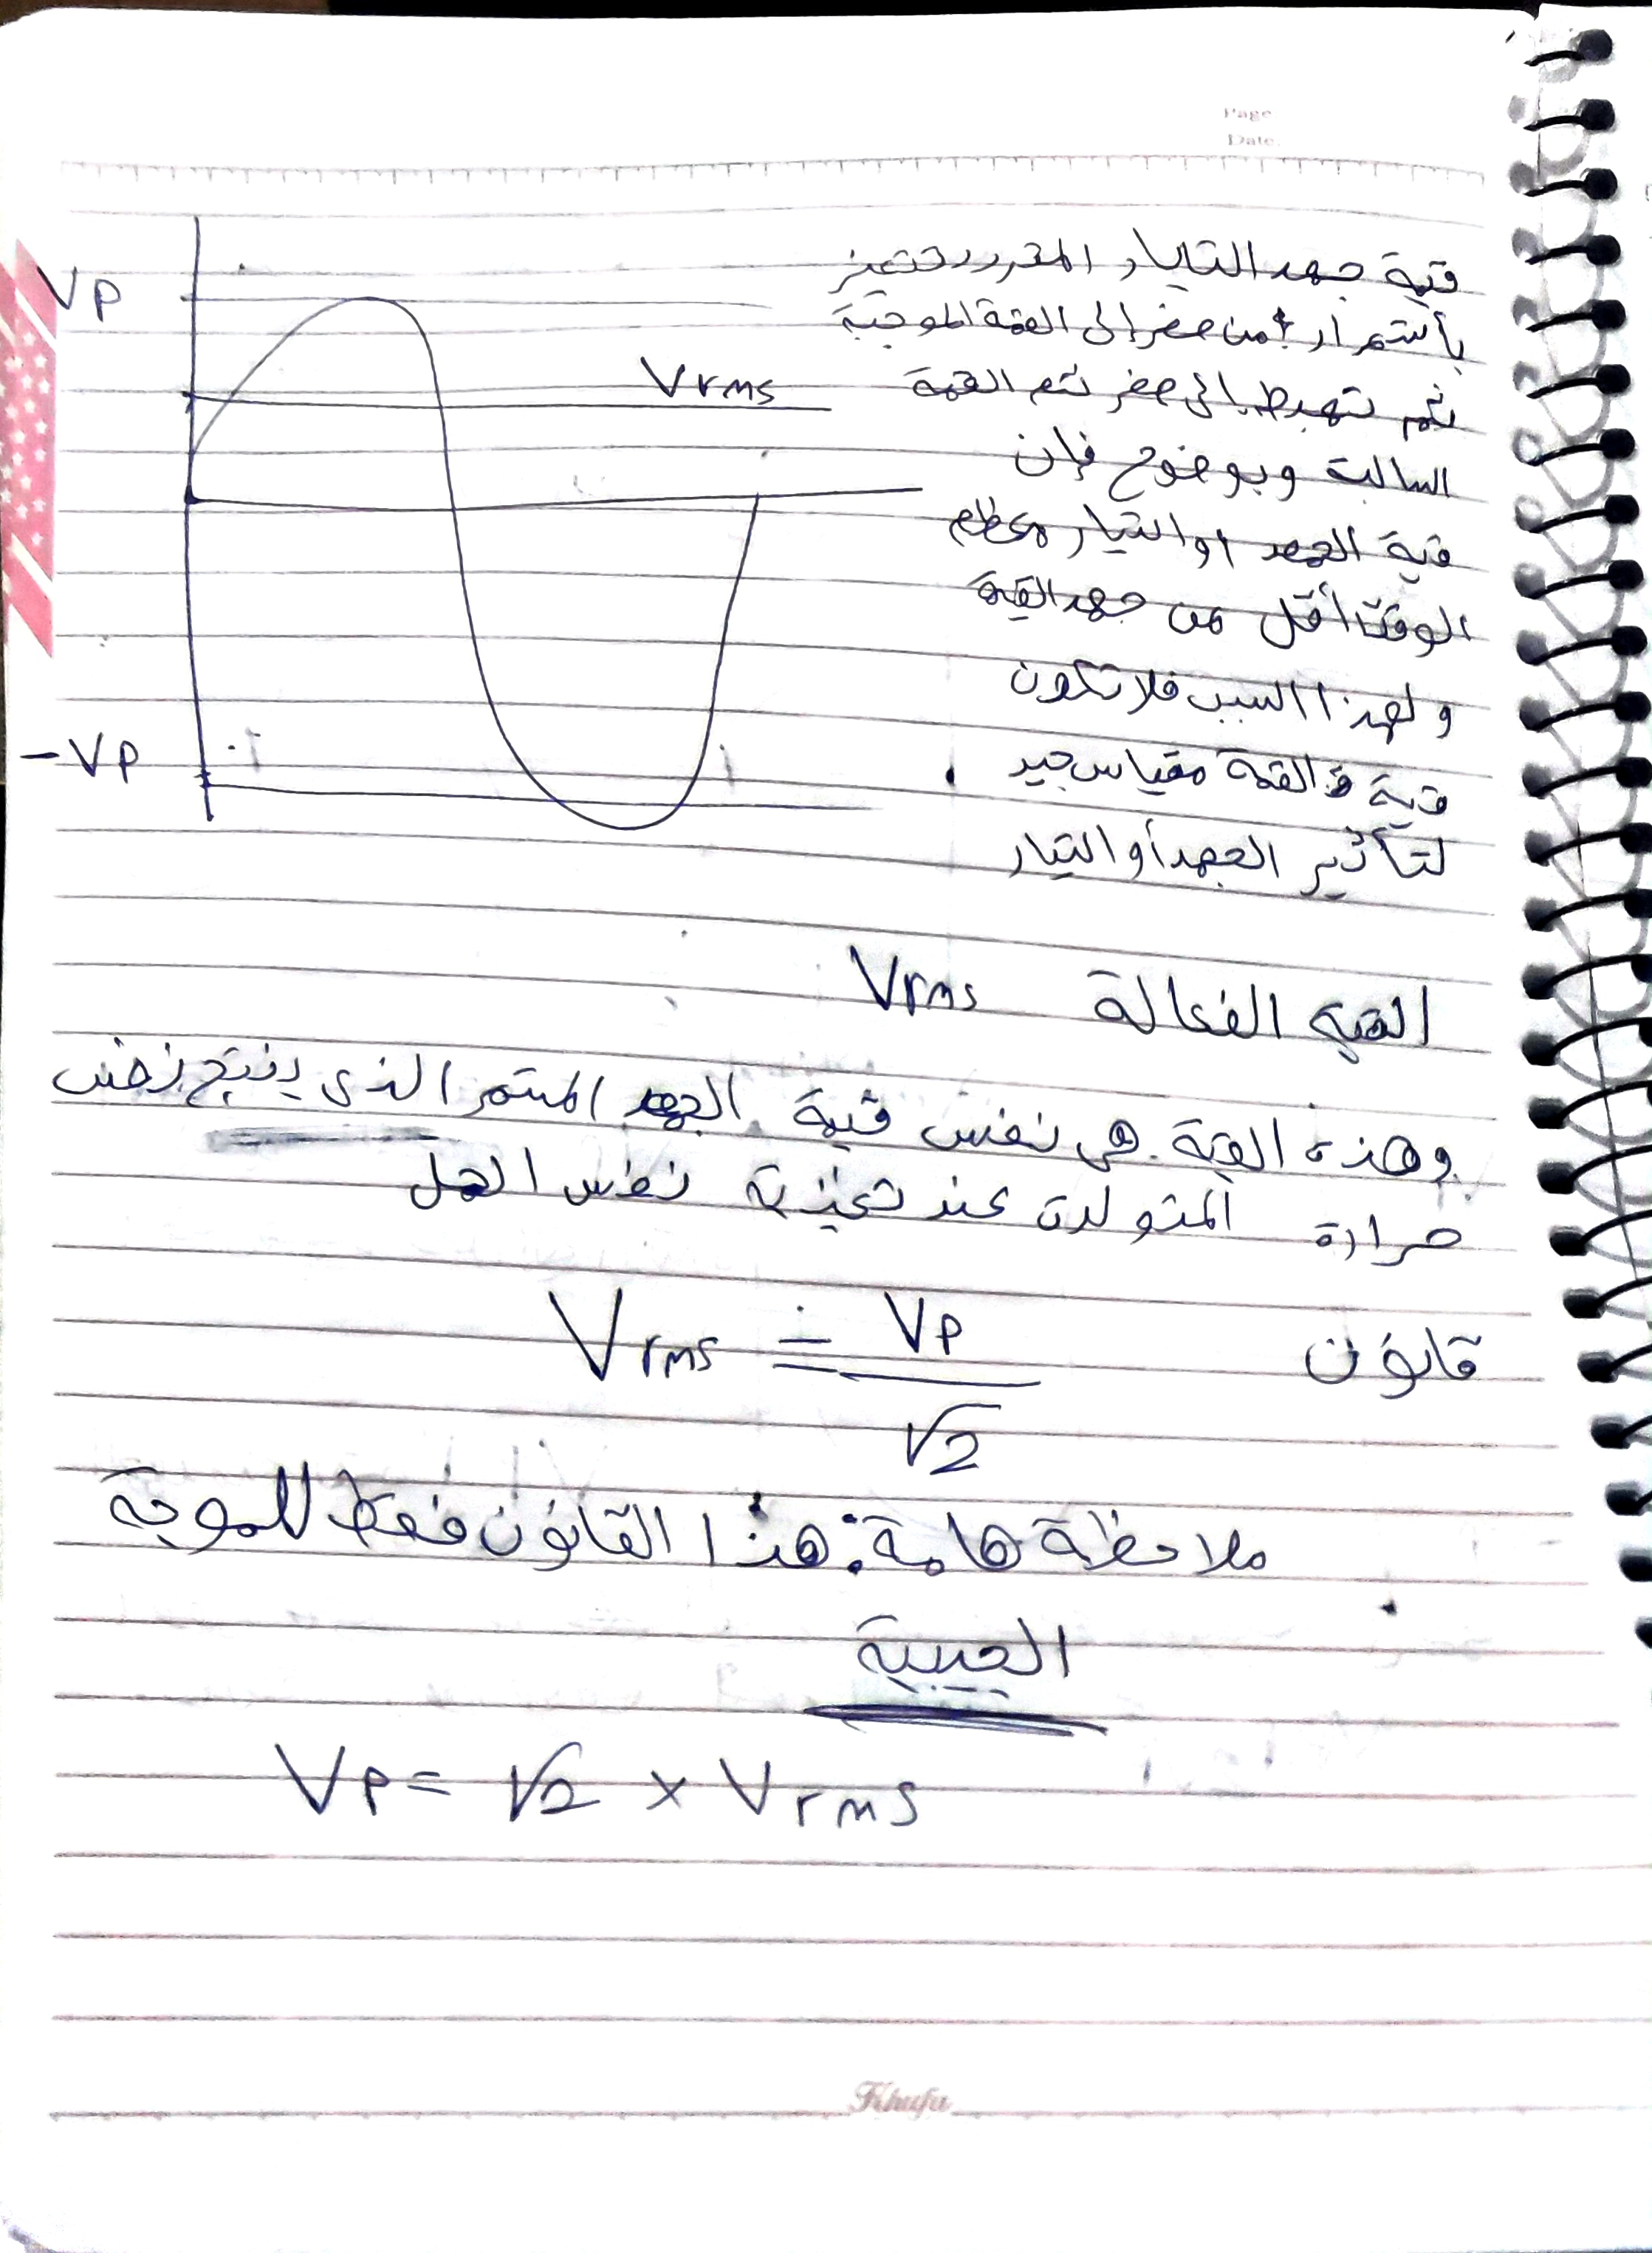 Page
Date.
قيمة جهد التيار المتردد تتغير
بأستمرار من صفر إلى القمة الموجبة
ثم تهبط إلى صفر ثم القمة
السالبة وبوضوح فإن
قيمة الجهد او التيار معظم
الوقت أقل من جهد القمة
ولهذا السبب فلا تكون
قيمة القمة مقياس جيد
لتأثير الجهد أو التيار
Vp
Vrms
-Vp
القيمة الفعالة Vrms
وهذه القيمة هى نفس قيمة الجهد المستمر الذى ينتج نفس
حرارة المتولدة عند تغذية نفس الحمل
قانون Vrms = Vp / √2
ملاحظة هامة: هذا القانون فقط للموجة
الجيبية
Vp = √2 × Vrms
Khufu